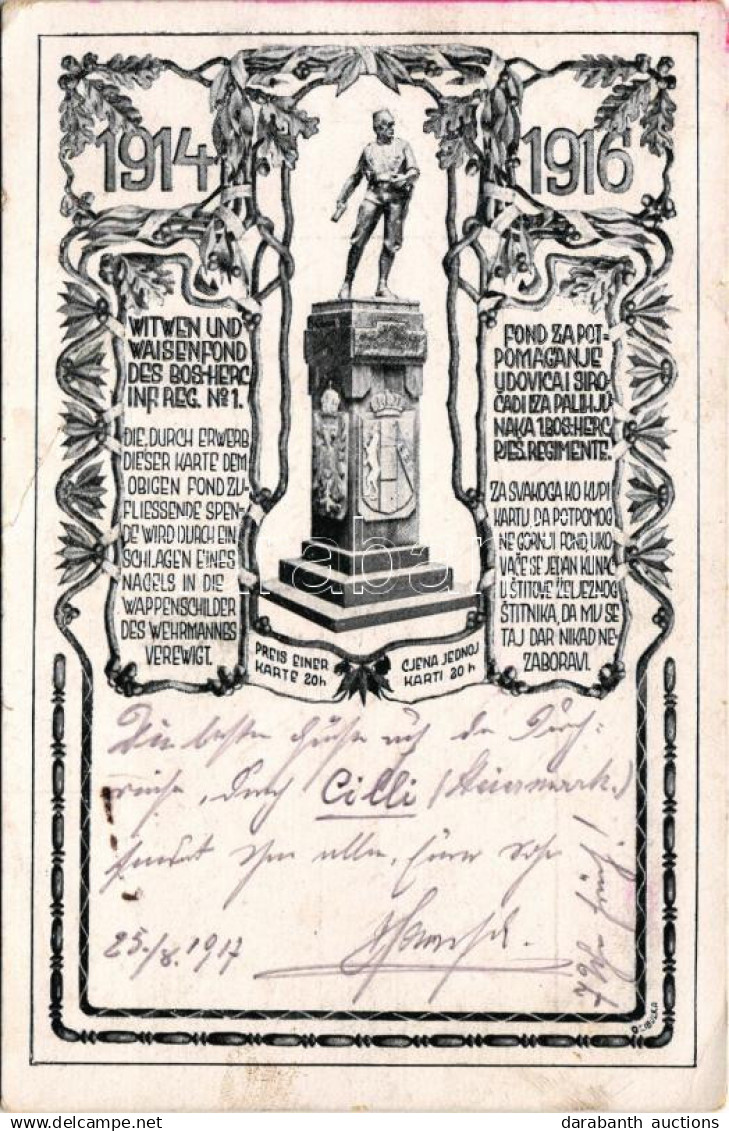 1914
1916
WITWEN UND
WAISENFOND
DES BOS-HERC
INF. REG. Nº 1.
DIE, DURCH ERWERB
DIESER KARTE DEM
OBIGEN FOND ZU-
FLIESSENDE SPEN-
DE WIRD DURCH EIN
SCHLAGEN EINES
NAGELS IN DIE
WAPPENSCHILDER
DES WEHRMANNES
VEREWIGT.
FOND ZA POT=
POMAGANJE
UDOVICA I SIRO-
ČADI IZA PALIH JU
NAKA 1. BOS-HERC
PJEŠ. REGIMENTE.
ZA SVAKOGA KO KUPI
KARTU, DA POTPOMOG
NE GORNJI FOND, UKO
VAČE SE JEDAN KLINAC
U ŠTITOVE ŽELJEZNOG
ŠTITNIKA, DA MU SE
TAJ DAR NIKAD NE-
ZABORAVI.
PREIS EINER
KARTE 20h
CJENA JEDNOJ
KARTI 20 h
Die beste Grüße auf der Durch=
reise, durch Cilli (Steiermark.)
sendet Ihnen allen, Euer
25./8. 1917
darabanth
darabanth auctions